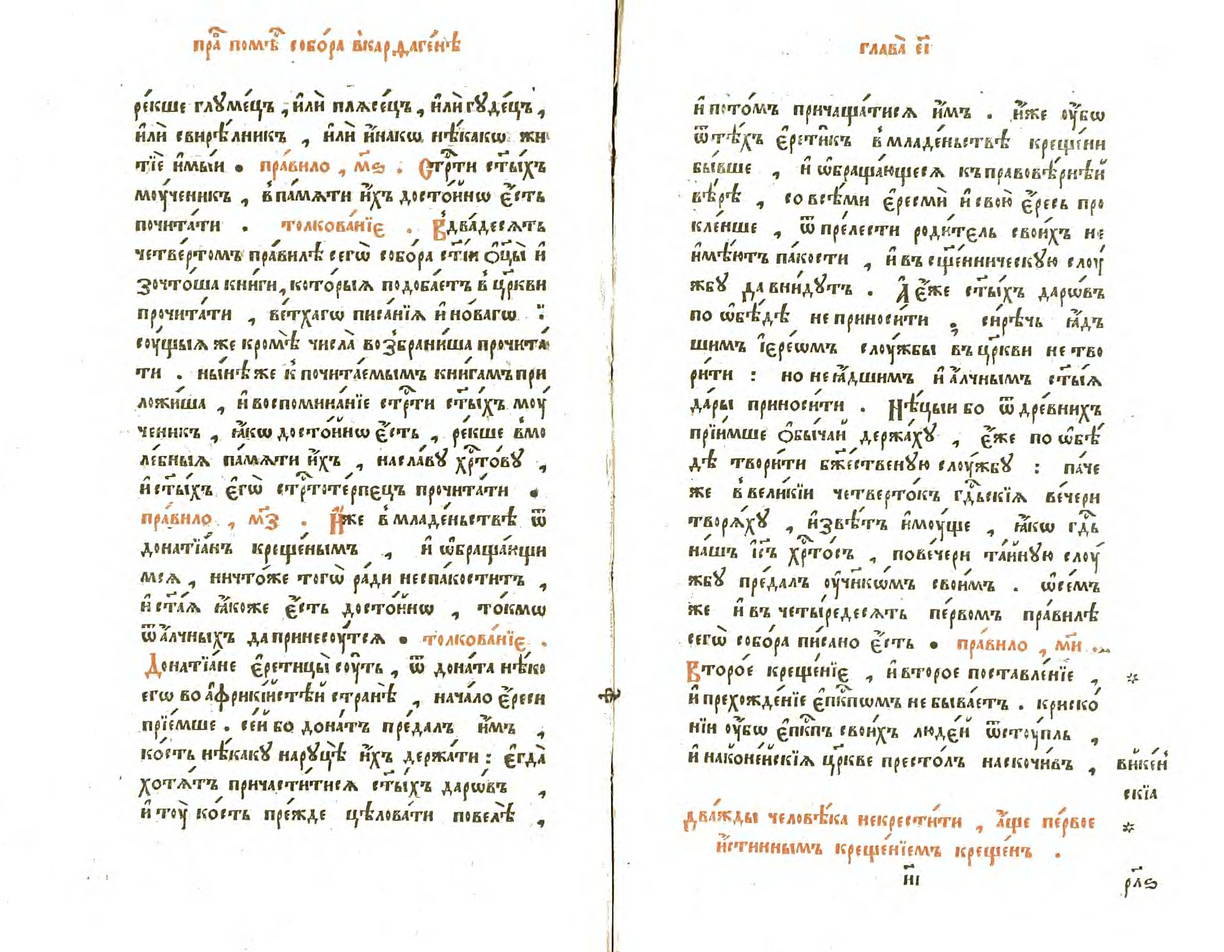 пра̑ помѣ̑ собо́ра в̾карѳаге́нѣ
ре́кше глꙋме́цъ , и҆лѝ плѧсе́цъ , и҆лѝ гꙋде́цъ ,
и҆лѝ свирѣ́лникъ , и҆лѝ и҆на́кѡ нѣ́какѡ жи
тїѐ и҆мы́и . пра́вило , м҃ѕ . Стрⷭ҇ти ст҃ы́хъ
моу́ченикъ , в̾па́мѧти и҆́хъ досто́йнѡ є҆́сть
почита́ти . толкова́нїє . В̾два́десѧть
четве́ртомъ пра́вилѣ сегѡ̀ собо́ра ст҃і́и ѻ҆ц҃ы̀ и҆
зочто́ша кни́ги , кото́рыѧ подоба́етъ в̾ цр҃кви
прочита́ти , ве́тхагѡ писа́нїѧ и҆ но́вагѡ :
соу́щыѧ же кромѣ̀ числа̀ возбрани́ша прочита́
ти . ны́нѣ же к̾ почита́емымъ кни́гамъ при
ложи́ша , и҆ воспомина́нїе стрⷭ҇ти ст҃ы́хъ моу́
ченик , ꙗ҆́кѡ досто́йнѡ є҆́сть , ре́кше в̾мо
ле́бныѧ па́мѧти и҆́хъ , на сла́вꙋ хрⷭ҇то́вꙋ ,
и҆ ст҃ы́хъ є҆гѡ̀ стрⷭ҇тоте́рпецъ прочита́ти .
пра́вило , м҃з . И҆́же в̾младе́ньствѣ ѿ
донатїа́нъ креще́нымъ , и҆ ѡ҆браща́ющи
мсѧ , ничто́же тогѡ̀ ра́ди неспако́ститъ ,
и҆ ст҃а́ѧ ꙗ҆́коже є҆́сть досто́йнѡ , то́кмѡ
ѿ а҆́лчныхъ да принесꙋ́тсѧ . толкова́нїє .
Донатїа́не є҆ретицы̀ соу́ть , ѿ дона́та нѣ́ко
егѡ во а҆фрикі́йстѣй странѣ̀ , нача́ло є҆́реси
прїе́мше . се́й бо дона́тъ преда́лъ и҆̀мъ ,
ко́сть нѣ́какꙋ на рꙋцѣ̀ и҆́хъ держа́ти : є҆гда̀
хотѧ́тъ причасти́тисѧ ст҃ы́хъ даро́въ ,
и҆ тоу̀ ко́сть пре́жде цѣлова́ти повелѣ̀ ,
глава̀ е҃і
и҆ пото́мъ причаща́тисѧ и҆̀мъ . и҆́же оу҆́бѡ
ѿ тѣ́хъ є҆рети́къ в̾младе́ньствѣ креще́ни
бы́вше , и҆ ѡ҆браща́ющеся къ правовѣ́рнѣй
вѣ́рѣ , со всѣ́ми є҆ресмѝ и҆ свою̀ є҆́ресь про
кле́нше , ѿ пре́лести роди́тель свои́хъ не
и҆мѣ́ютъ па́кости , и҆ въ сщ҃е́нническꙋю слоу́
жбꙋ да вни́дꙋтъ . А҆ є҆́же ст҃ы́хъ даро́въ
по ѡ҆бѣ́дѣ не приноси́ти , си́рѣчь ꙗ҆́дъ
шимъ і҆ере́ѡмъ слоу́жбы въ цр҃кви не тво
ри́ти : но не ꙗ҆́дшимъ и҆ а҆́лчнымъ ст҃ы́ѧ
да́ры приноси́ти . Нѣ́цыи бо ѿ дре́внихъ
прїи́мше ѻ҆бы́чай держа́хꙋ , є҆́же по ѡ҆бѣ́
дѣ твори́ти бж҃е́ственꙋю слоу́жбꙋ : па́че
же в̾ вели́кїи четверто́къ гдⷭ҇ьскїѧ ве́чери
творѧ́хꙋ , и҆звѣ́тъ и҆моу́ще , ꙗ҆́кѡ гдⷭ҇ь
на́шъ і҆с҃ъ хрⷭ҇то́съ , по ве́чери та́йнꙋю слоу́
жбꙋ преда́лъ оу҆чн҃кѡ́мъ свои́мъ . ѡ҆ се́мъ
же и҆ въ четы́редесѧть пе́рвомъ пра́вилѣ
сегѡ̀ собо́ра пи́сано є҆́сть . пра́вило , м҃и .
Второ́е креще́нїє , и҆ второе поставле́нїе , *
и҆ прехожде́нїе є҆пⷭ҇кпѡмъ не быва́етъ . криско́
нїи оу҆́бѡ є҆пⷭ҇кпъ свои́хъ люде́й ѿстоу́пль ,
и҆ наконе́йскїѧ цр҃кве престо́лъ наскочи́въ , вике́й
скїа
*
два́жды человѣ́ка некрести́ти , а҆́ще пе́рвое
и҆́стиннымъ креще́нїемъ креще́нъ .
н҃і
рл҃ѕ